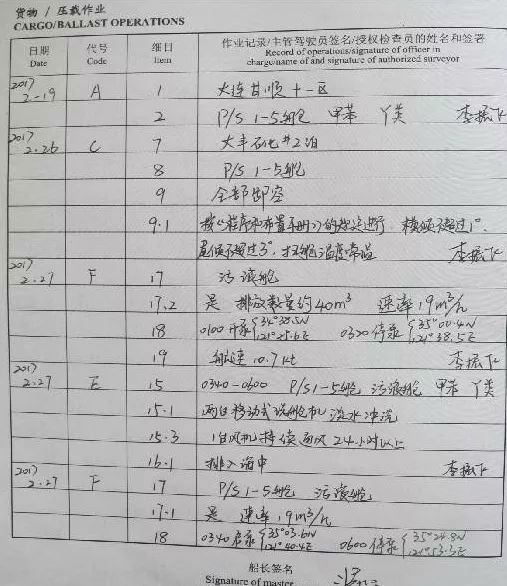 货物 / 压载作业
CARGO/BALLAST OPERATIONS
日期 代号 细目 作业记录/主管驾驶员签名/授权检查员的姓名和签署
Date Code Item Record of operations/signature of officer in
charge/name of and signature of authorized surveyor
2017
2-19 A 1 大连甘顺十一区
2 P/S 1-5舱 甲苯 Y类 李振
2017
2.26 C 7 大丰石化#2泊
8 P/S 1-5舱
9 全部卸空
9.1 按《程序和布置手册》的规定进行 横倾不超过1°.
尾倾不超过3°, 扫舱温度常温 李振
2017
2.27 F 17 污液舱
17.2 是 排放数量约40m³ 速率19m³/h
18 0100开泵{34°38.5N 0320停泵{35°00.4N
121°25.6E 121°38.5E
19 航速10.7kt 李振
2017
2.27 E 15 0340-0600 P/S1-5舱 污液舱 甲苯 Y类
15.1 两台移动式洗舱机 淡水冲洗
15.3 1台风机持续通风24小时以上
16.1 排入海中 李振
2017
2.27 F 17 P/S1-5舱 污液舱
17.1 是 速率19m³/h
18 0340启泵{35°03.6N 0600停泵{35°24.8N
121°40.4E 121°53.3E
船长签名
Signature of master